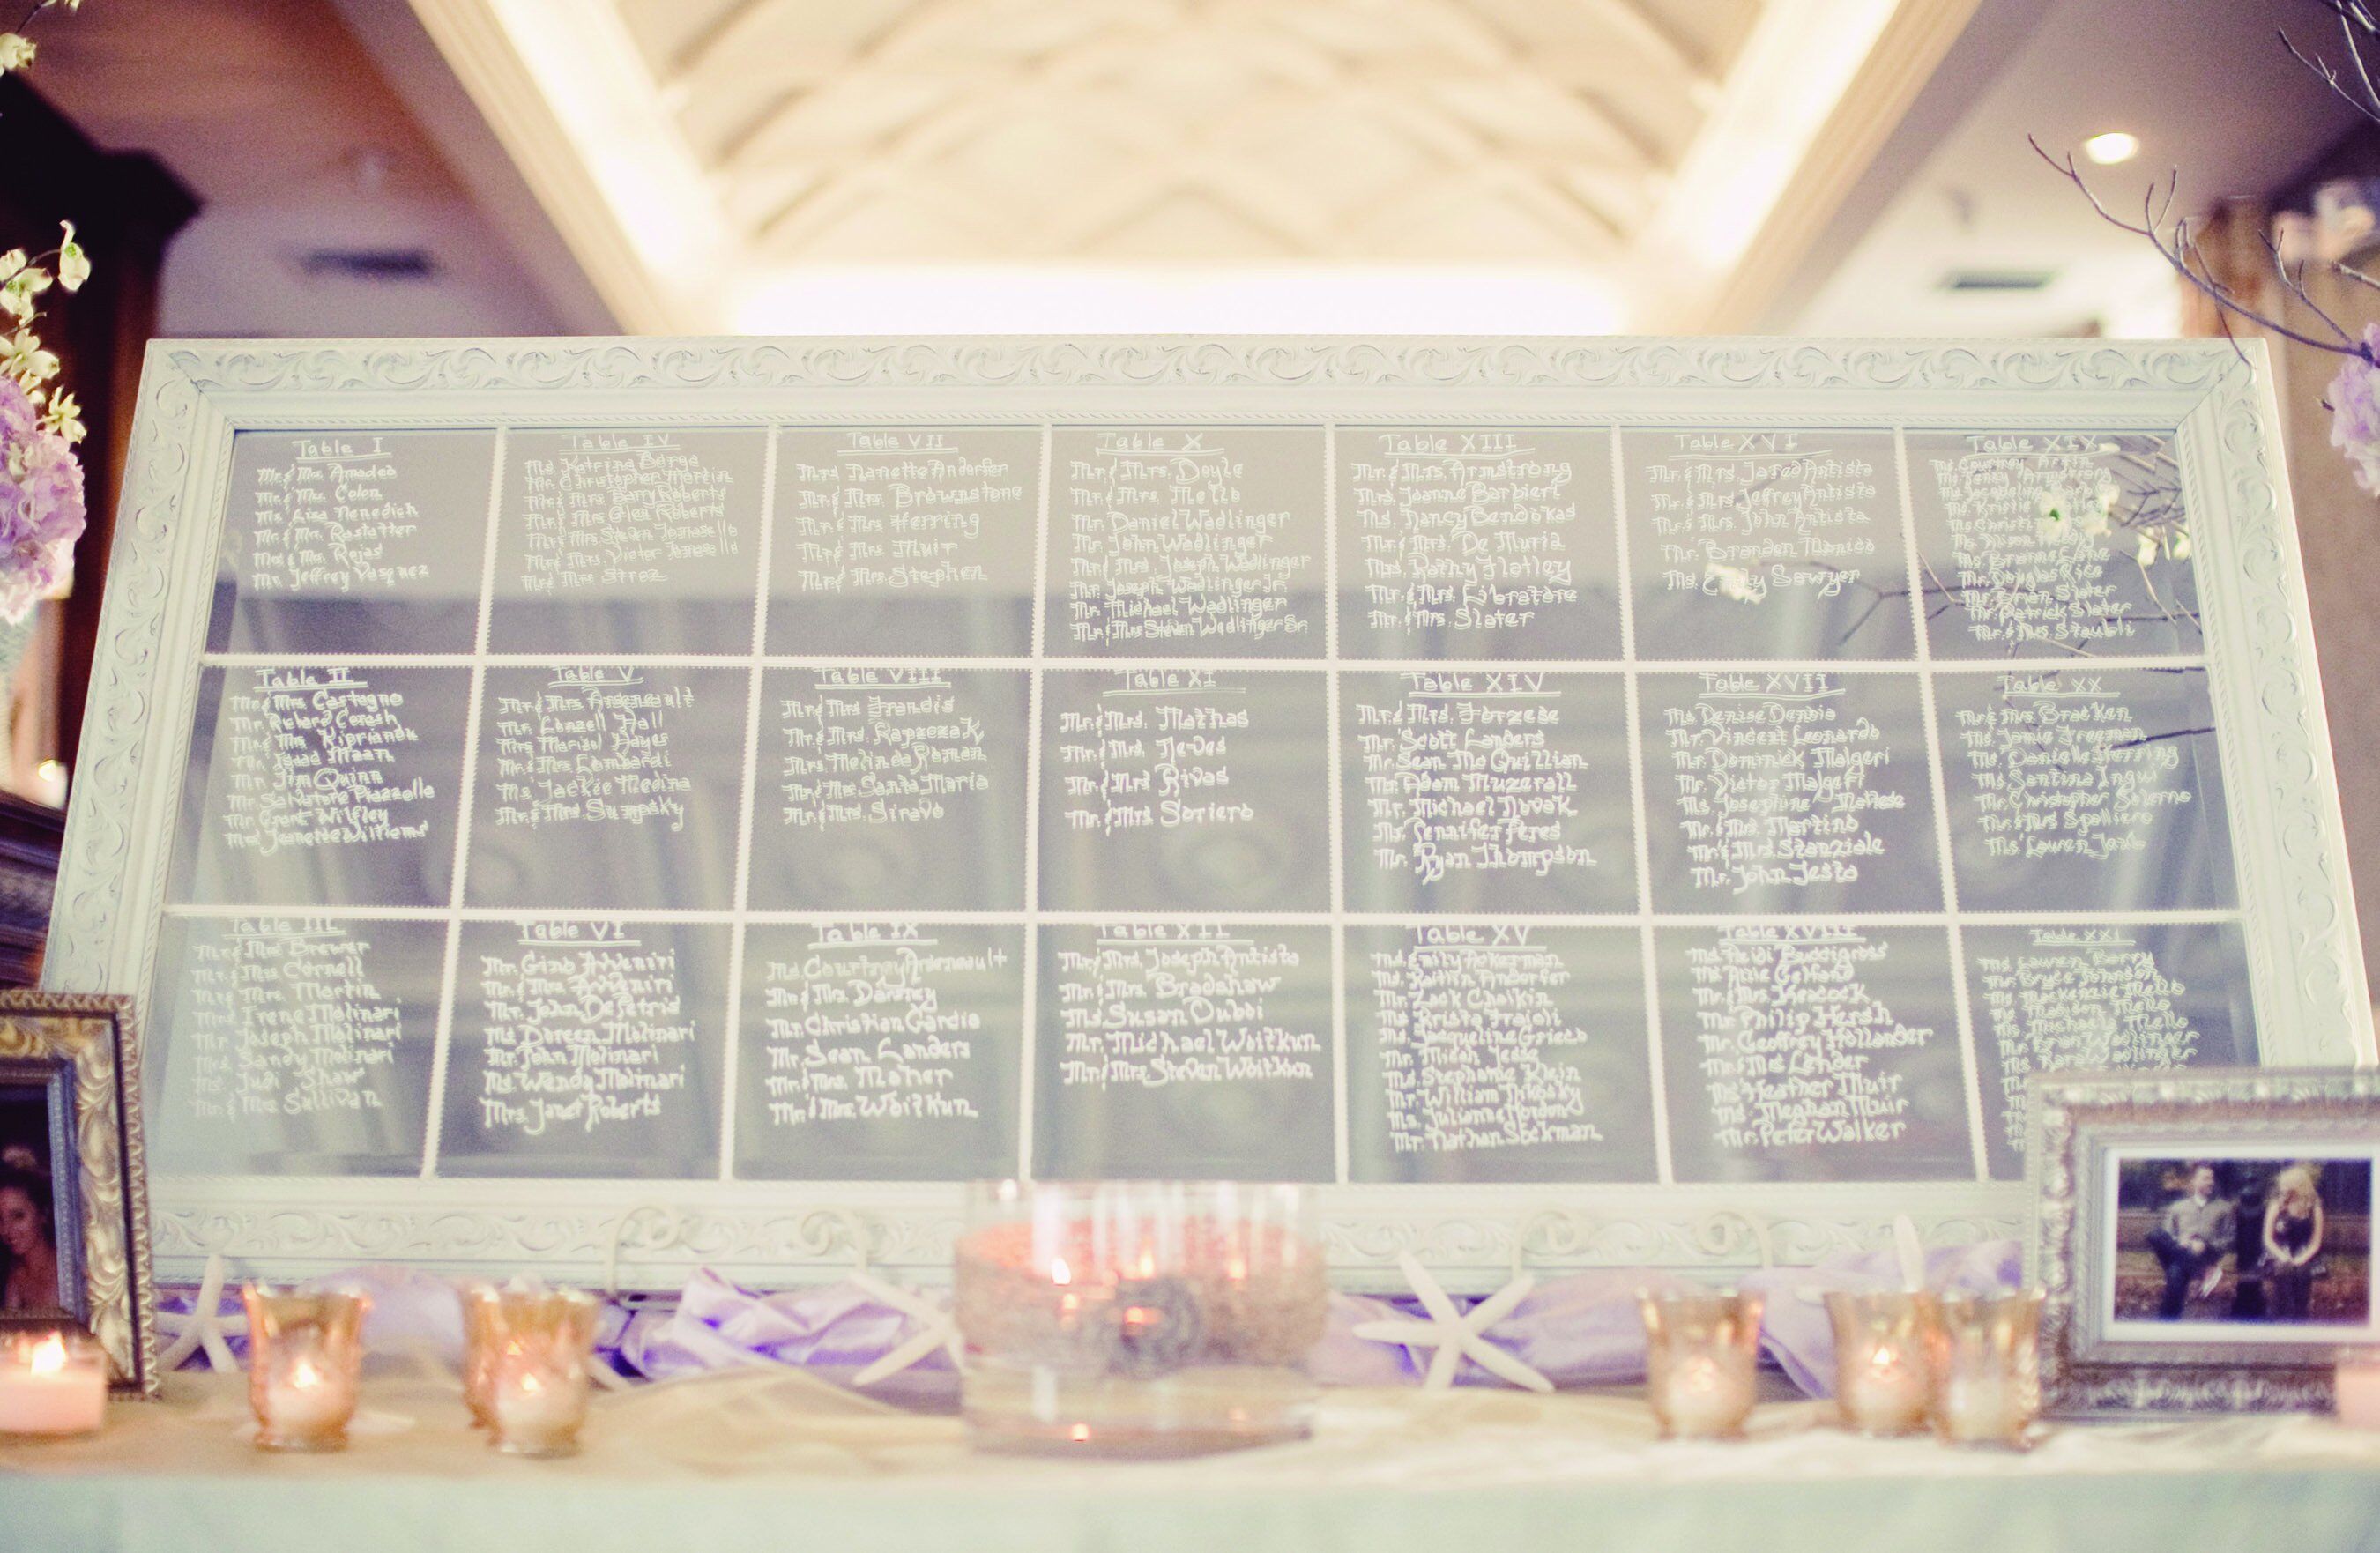 Table I
Mr. & Mrs. Amadeo
Mr. & Mrs. Colon
Ms. Lisa Menedich
Mr. & Mrs. Rostatter
Mr. & Mrs. Rojas
Mr. Jeffrey Vasquez
Table II
Mr. & Mrs. Castagno
Mr. Richard Ceresh
Mr. & Mrs. Kiprianok
Maan
Mr. Jim Quinn
Mr. Salvatore Piazzolla
Mr. Grant Wilfley
Jeanette Williams
Table III
Mr. & Mrs. Brewer
Mr. & Mrs. Cornell
Mr. & Mrs. Martin
Irene Molinari
Mr. Joseph Molinari
Sandy Molinari
Ms. Judi Shaw
Mr. & Mrs. Sullivan
Table IV
Ms. Katrina Berge
Mr. Christopher Marcin
Mr. & Mrs. Barry Roberts
Mr. & Mrs. Glen Roberts
Mr. & Mrs. Steven
Mr. & Mrs. Victor
Mr. & Mrs. Stroz
Table V
Mr. & Mrs. Arseneault
Mr. Lonzell Hall
Hayes
Mr. & Mrs. Lombardi
Ms. Jackie Medina
Mr. & Mrs. Sumpsky
Table VI
Mr. Gino Avveniri
Mr. & Mrs. Avveniri
Mr. John DePetris
Ms. Doreen Molinari
Mr. John Molinari
Ms. Wendy Molinari
Mrs. Janet Roberts
Table VII
Mrs. Nanette Andorfer
Mr. & Mrs. Brownstone
Mr. & Mrs. Herring
Mr. & Mrs. Muir
Mr. & Mrs. Stephen
Table VIII
Mr. & Mrs. Francis
Mr. & Mrs. Rapczak
Mrs. Melinda Roman
Mr. & Mrs. Santa Maria
Mr. & Mrs. Siravo
Table IX
Ms. Courtney Arseneault
Mr. & Mrs. Darcey
Mr. Christian Garcia
Mr. Sean Landers
Mr. & Mrs. Maher
Mr. & Mrs. Woitkun
Table X
Mr. & Mrs. Doyle
Mr. & Mrs. Mello
Mr. Daniel Wadlinger
Mr. John Wadlinger
Mr. & Mrs. Joseph Wadlinger
Mr. Joseph Wadlinger Jr.
Mr. Michael Wadlinger
Mr. & Mrs. Steven Wadlinger Sr.
Table XI
Mr. & Mrs. Mathas
Mr. & Mrs. Neves
Mr. & Mrs. Rivas
Mr. & Mrs. Soriero
Table XII
Mr. & Mrs. Joseph Antista
Mr. & Mrs. Bradshaw
Ms. Susan Duboi
Mr. Michael Woitkun
Mr. & Mrs. Steven Woitkun
Table XIII
Mr. & Mrs. Armstrong
Mrs. Joanne Barbieri
Ms. Nancy Bendokas
Mr. & Mrs. De Muria
Ms. Kathy Flatley
Mr. & Mrs. Libratore
Mr. & Mrs. Slater
Table XIV
Mr. & Mrs. Forzese
Mr. Scott Landers
Mr. Sean McQuillian
Mr. Adam Muzerall
Mr. Michael Novak
Ms. Jennifer Peres
Mr. Ryan Thompson
Table XV
Ms. Emily Ackerman
Ms. Kaitlin Andorfer
Mr. Zack Chaikin
Ms. Krista Fraioli
Ms. Jacqueline Grieco
Mr. Micah Jesse
Ms. Stephanie Klein
Mr. William
Ms. Julianne Mordon
Mr. Nathan Stockman
Table XVI
Mr. & Mrs. Jared Antista
Mr. & Mrs. Jeffrey Antista
Mr. & Mrs. John Antista
Mr. Brandon Manico
Ms. Emily Sawyer
Table XVII
Ms. Denise Denbia
Mr. Vincent Leonardo
Mr. Dominick Malgeri
Mr. Victor Malgeri
Ms. Josephine Maltese
Mr. & Mrs. Martino
Mr. & Mrs. Stanziale
Mr. John Testo
Table XVIII
Ms. Heidi
Ms. Allie Gelfand
Mr. & Mrs. Heacock
Mr. Philip Hersh
Mr. Geoffrey Hollander
Mr. & Ms. Lehder
Ms. Heather Muir
Ms. Meghan Muir
Mr. Peter Walker
Table XIX
Ms. Courtney
Armstrong
Ms. Jacqueline
Ms. Kristie
Ms. Brianne
Mr. Douglas Rice
Mr. Brian Slater
Mr. Patrick Slater
Mr. & Mrs. Staubli
Table XX
Mr. & Mrs. Bracken
Ms. Jamie Freeman
Ms. Danielle Herring
Ms. Santina Ingui
Mr. Christopher Salerno
Mr. & Mrs. Spolliero
Ms. Lauren
Table XXI
Ms. Lauren Barry
Mr. Bryce Johnson
Ms. Mackenzie Mello
Ms. Madison Mello
Ms. Michaela Mello
Mr. Brian Wadlinger
Ms. Kara Wadlinger